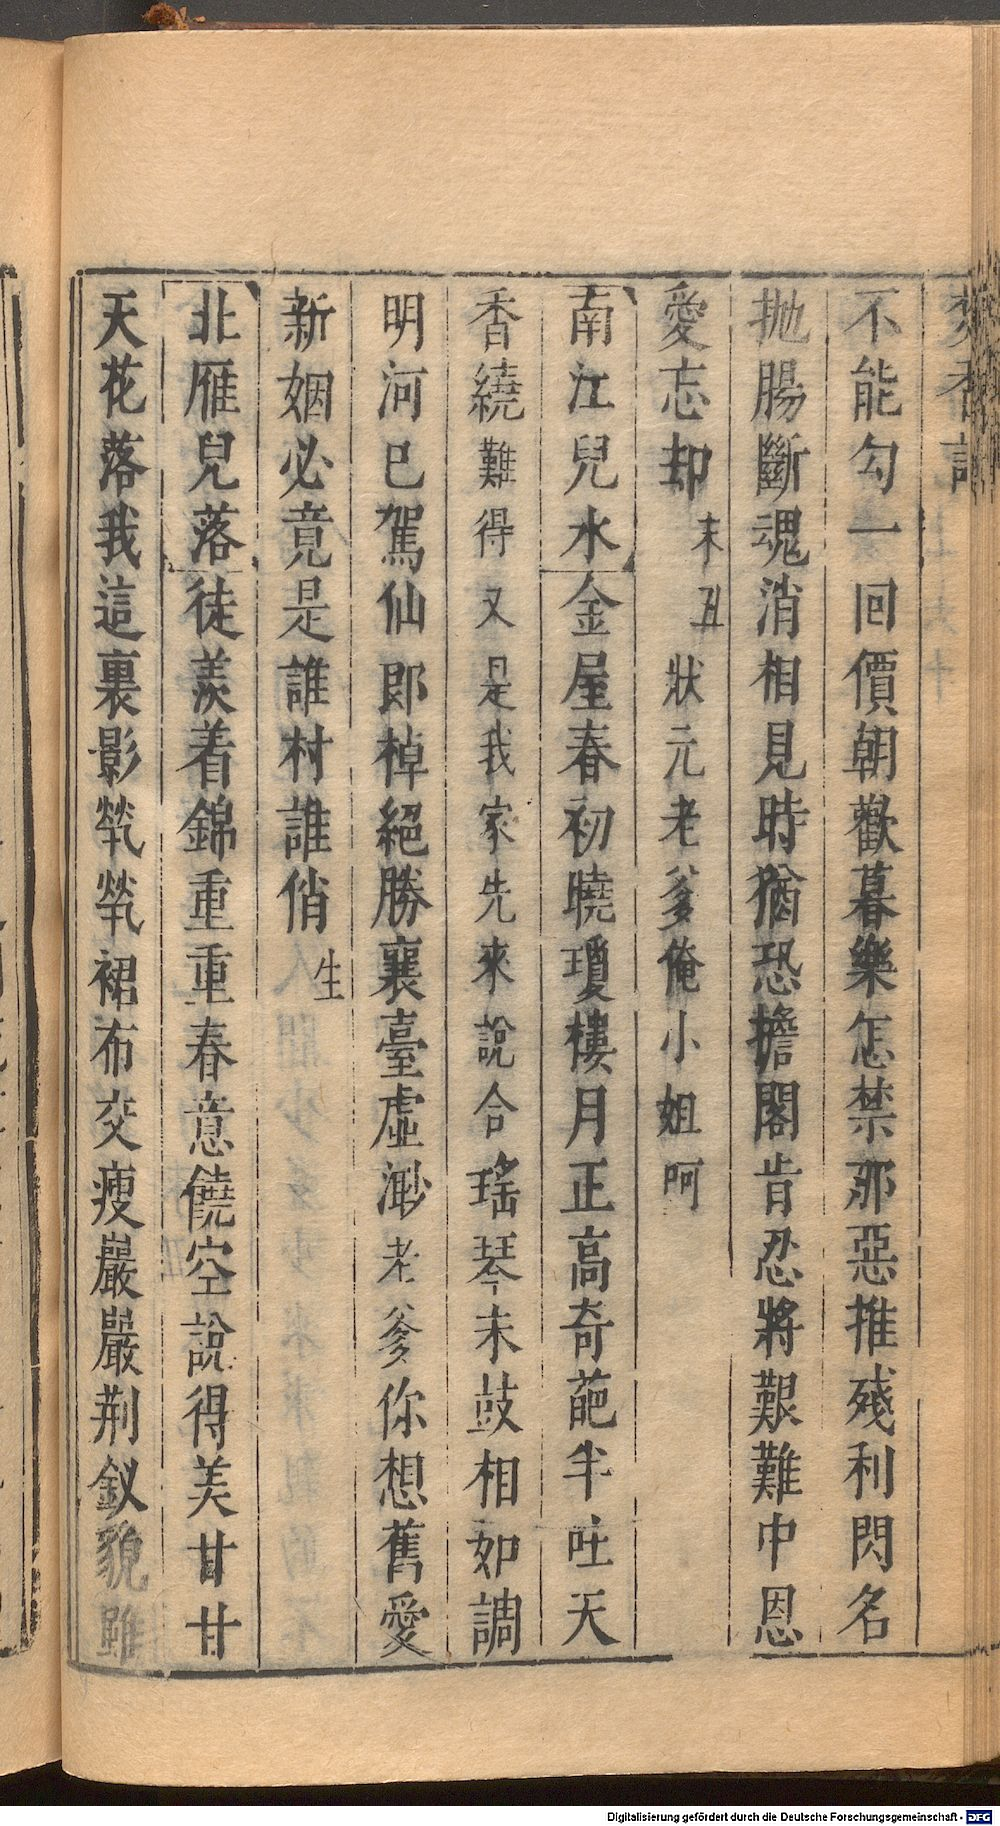 焚香記
不能勾一回價朝歡暮樂怎禁那惡推殘利閃名
拋腸斷魂消相見時猶恐擔閣肯忍將艱難中恩
愛忘却末丑狀元老爹俺小姐呵
南江兒水金屋春初曉瓊樓月正高奇葩半吐天
香繞難得又是我家先來說合瑤琴未鼓相如調
明河已駕仙郎棹絕勝襄臺虛渺老爹你想舊愛
新姻必竟是誰村誰俏生
北雁兒落徒羨着錦重重春意饒空說得美甘甘
天花落我這裏影煢煢裙布交瘦巖巖荆釵貌雖
Digitalisierung gefördert durch die Deutsche Forschungsgemeinschaft - DFG